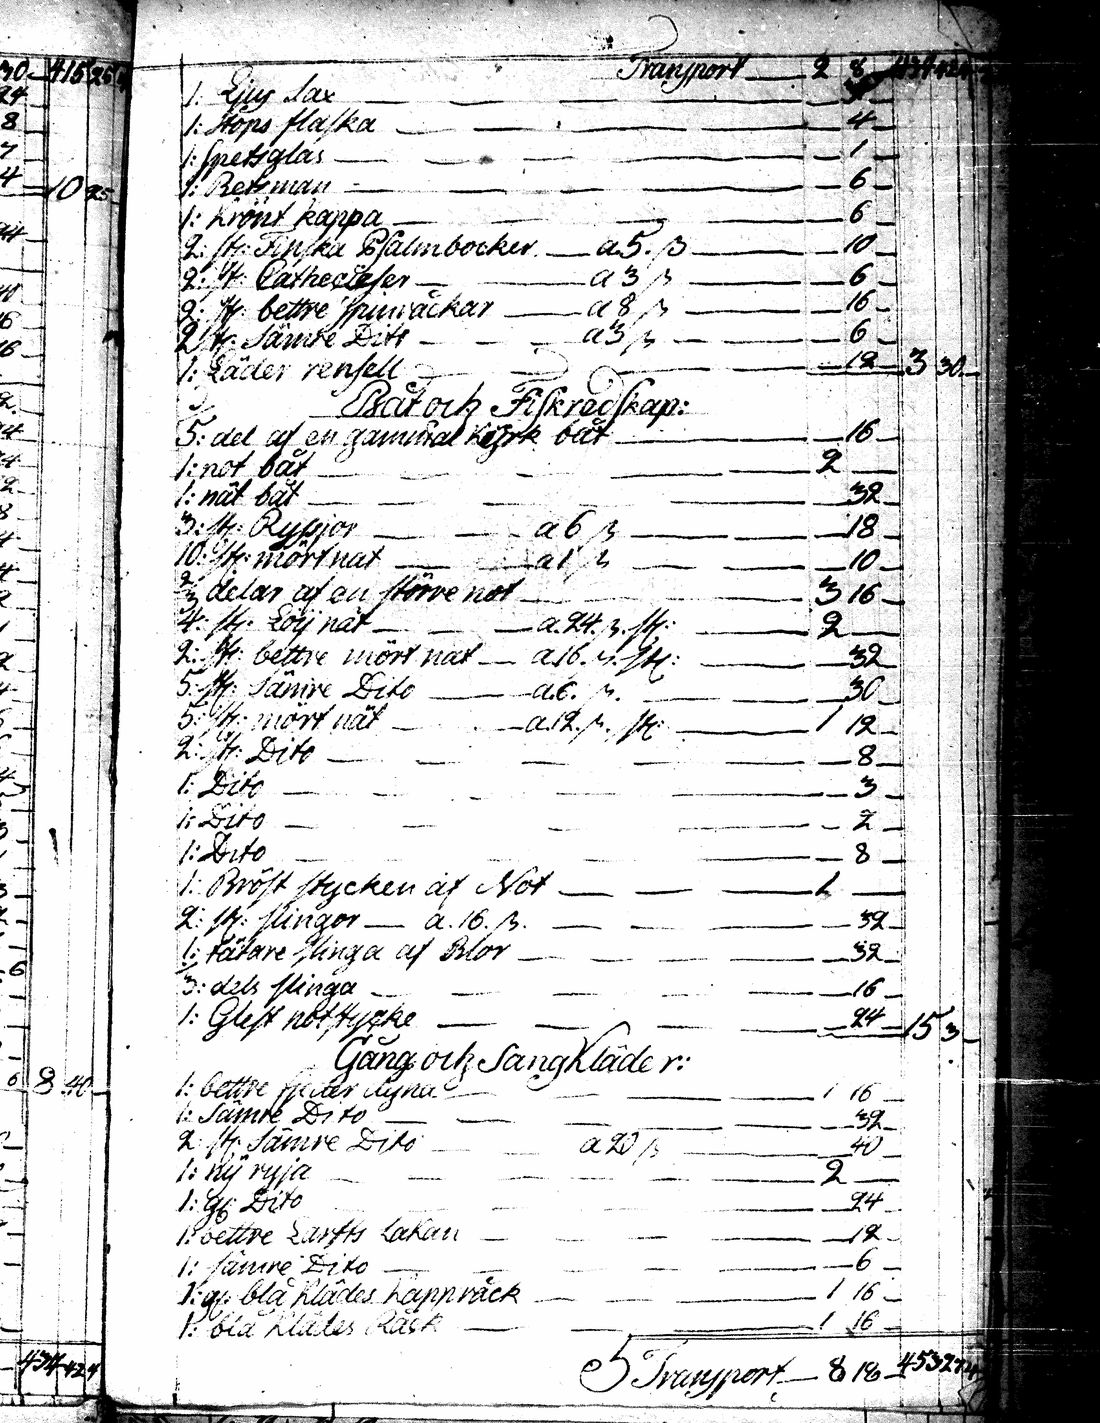 Transport 2 8 434 42 4
1: Ljus Sax
1: Stops flaska 4
1: spetsglas 1
1: Betsman 6
1: Krönt kappa 6
2: st: Finska Psalmböcker a 5. ß 10
2: st: Catheceser a 3 ß 6
2: st: bettre spinråckar a 8 ß 16
2 st: Sämre Dito a 3 ß 6
1: Läder rensell 12 3 30
Båt och Fiskredskap:
5: del af en gammal kyrk båt 16
1: not båt 2
1: nät båt 32
3: st: Rysjor a 6 ß 18
10: st: mört nät a 1 ß 10
2/3 delar af en större not 3 16
4: st: Löij nät a. 24. ß. st: 2
2: st: bettre mört nät a 16. ß. st: 32
5: st: Sämre Dito a 6. ß. 30
5: st: mört nät a 12. ß. st: 1 12
2: st: Dito 8
1: Dito 3
1: Dito 2
1: Dito 8
1: Bröst stycken af Not 1
2: st: slingor a. 16. ß. 32
1: tätare slinga af Blor 32
3: dels slinga 16
1: Glest notstycke 24 15 3
Gång och Sängkläder:
1: bettre fjäder dyna 1 16
1: Sämre Dito 32
2: st: Sämre Dito a 20 ß 40
1: ny ryja 2
1: gl: Dito 24
1: bettre Larfts Lakan 12
1: sämre Dito 6
1: gl: blå Klädes Kappråck 1 16
1: blå Klädes Råck 1 16
Transport 8 18 453 27 4
30 415 26 4
24
8
7
4 10 25
6
6 8 40
434 42 4